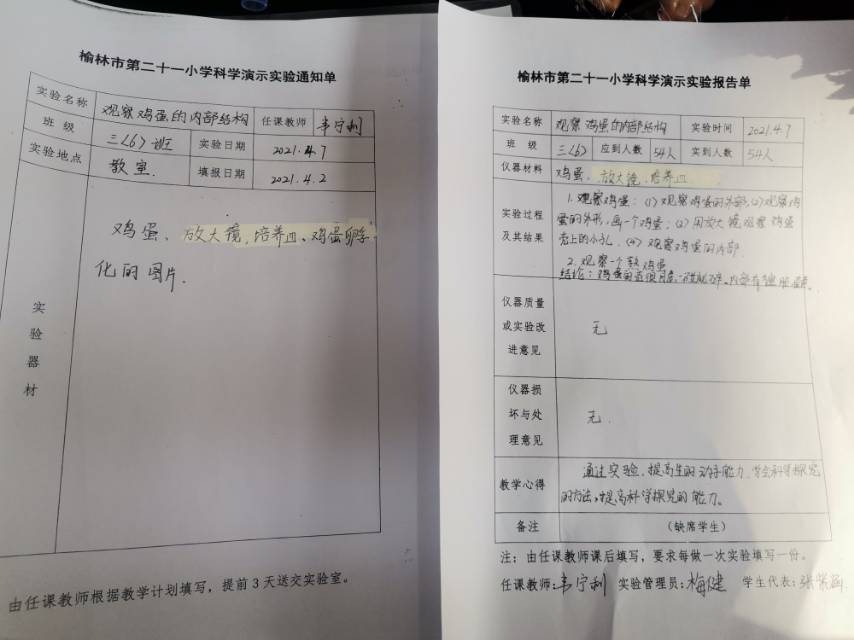 榆林市第二十一小学科学演示实验通知单
实验名称 观察鸡蛋的内部结构 任课教师 韦宁利
班 级 三〈6〉班 实验日期 2021.4.7
实验地点 教室 填报日期 2021.4.2
实验器材
鸡蛋、放大镜、培养皿、鸡蛋孵
化的图片.
由任课教师根据教学计划填写，提前3天送交实验室。
榆林市第二十一小学科学演示实验报告单
实验名称 观察鸡蛋的内部结构 实验时间 2021.4.7
班 级 三〈6〉 应到人数 54人 实到人数 54人
仪器材料 鸡蛋、放大镜、培养皿
实验过程及其结果
1.观察鸡蛋：(1)观察鸡蛋的外部,(2)观察鸡
蛋的外形，画一个鸡蛋；(3)用放大镜观察鸡蛋
壳上的小孔.(4)观察鸡蛋的内部.
2.观察一个熟鸡蛋
结论：鸡蛋的
仪器质量或实验改进意见 无
仪器损坏与处理意见 无.
教学心得 通过实验，提高生的动手能力，学会科学探究
的方法，提高科学探究的能力。
备注 （缺席学生）
注：由任课教师课后填写，要求每做一次实验填写一份。
任课教师:韦宁利 实验管理员:梅健 学生代表:张紫涵